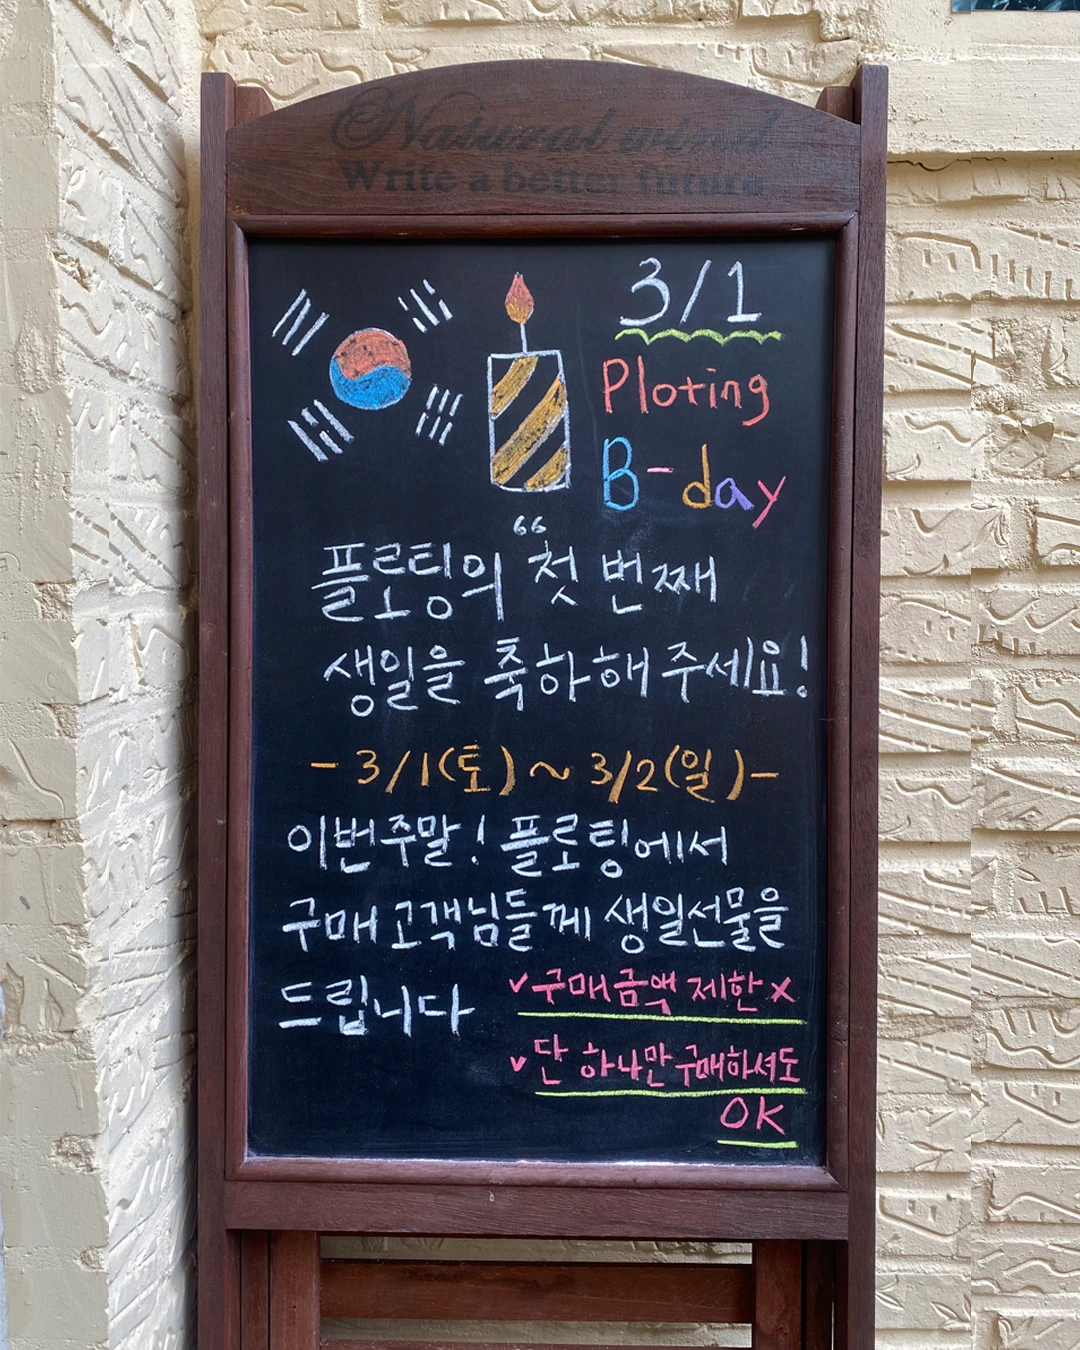 Natural wind
Write a better future
3/1
Ploting
B-day
플로팅의 “첫 번째
생일을 축하해주세요!
- 3/1(토) ~ 3/2(일) -
이번주말! 플로팅에서
구매고객님들께 생일선물을
드립니다
✓구매금액 제한 x
✓단 하나만 구매하셔도
OK